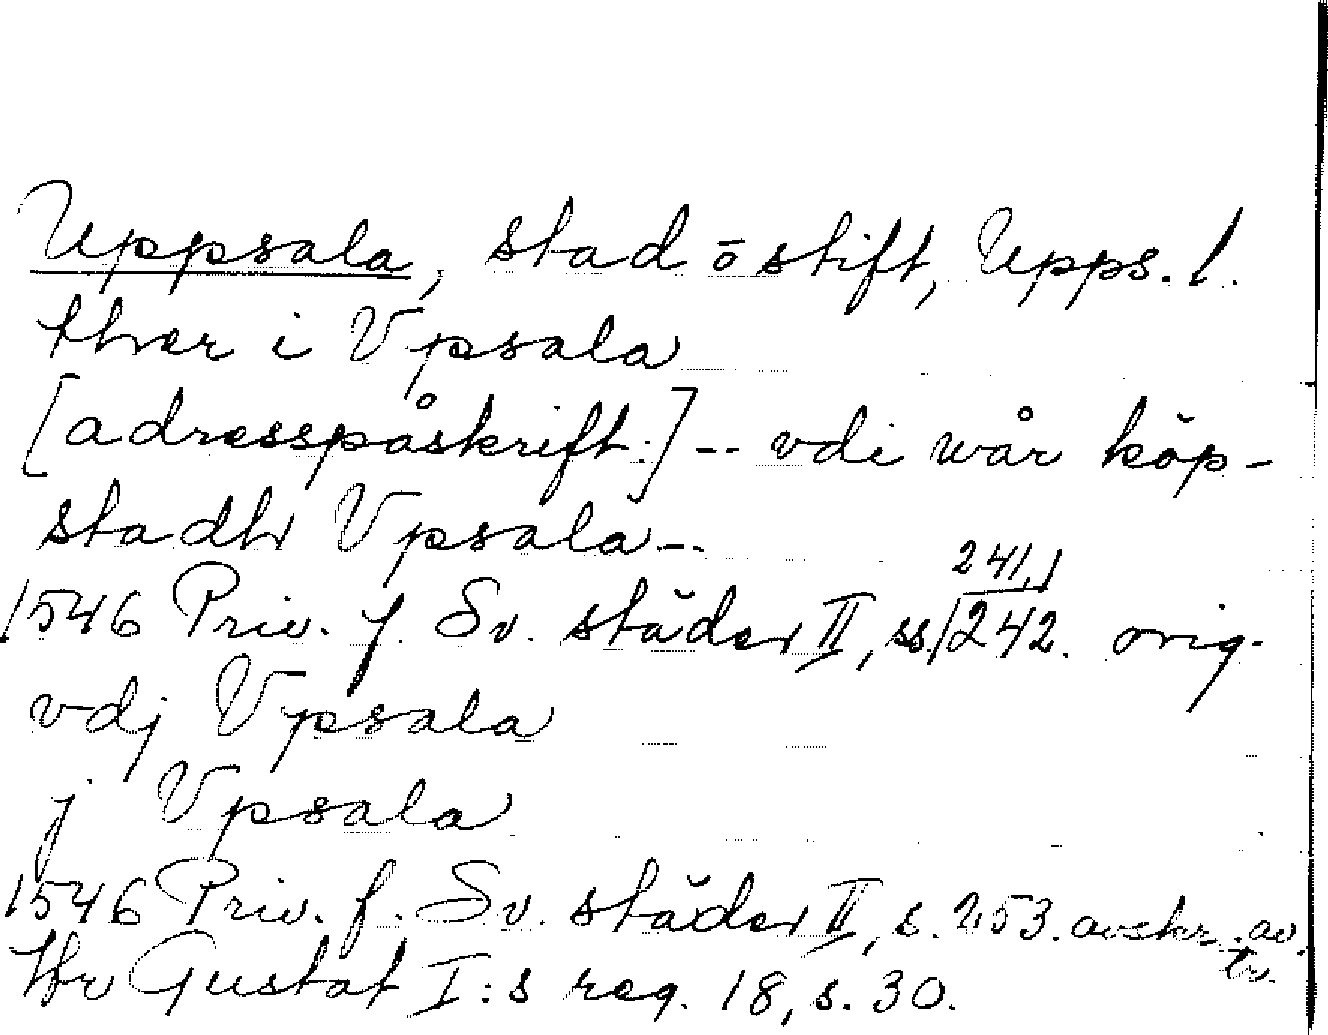 Uppsala, stad o stift, Upps. l.
ther i Vpsala
[adresspåskrift:] -- vdi wår köp-
stadh Vpsala --
241,
1546 Priv. f. Sv. städer II, ss. 242. orig.
vdj Vpsala
j Vpsala
1546 Priv. f. Sv. städer II, s. 253. avskr. av
tr.
Gustaf I:s reg. 18, s. 30.